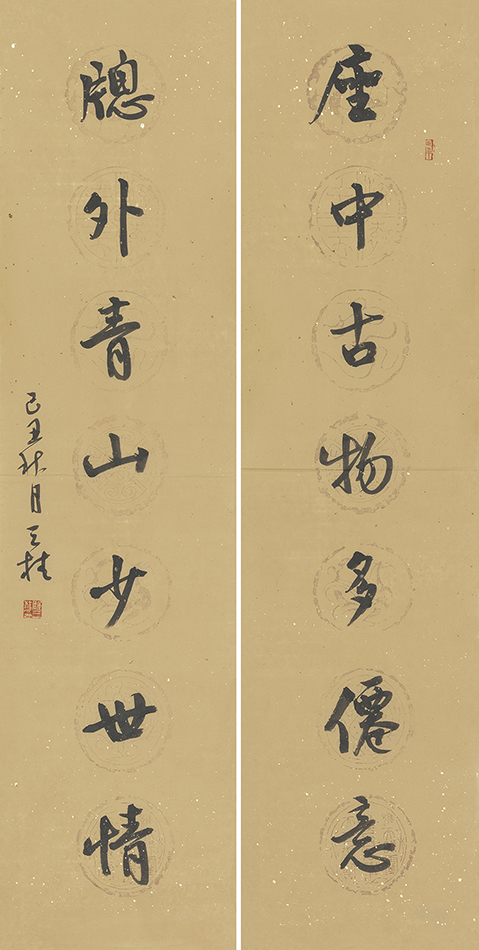 座中古物多僊意
牕外青山少世情
己丑秋月